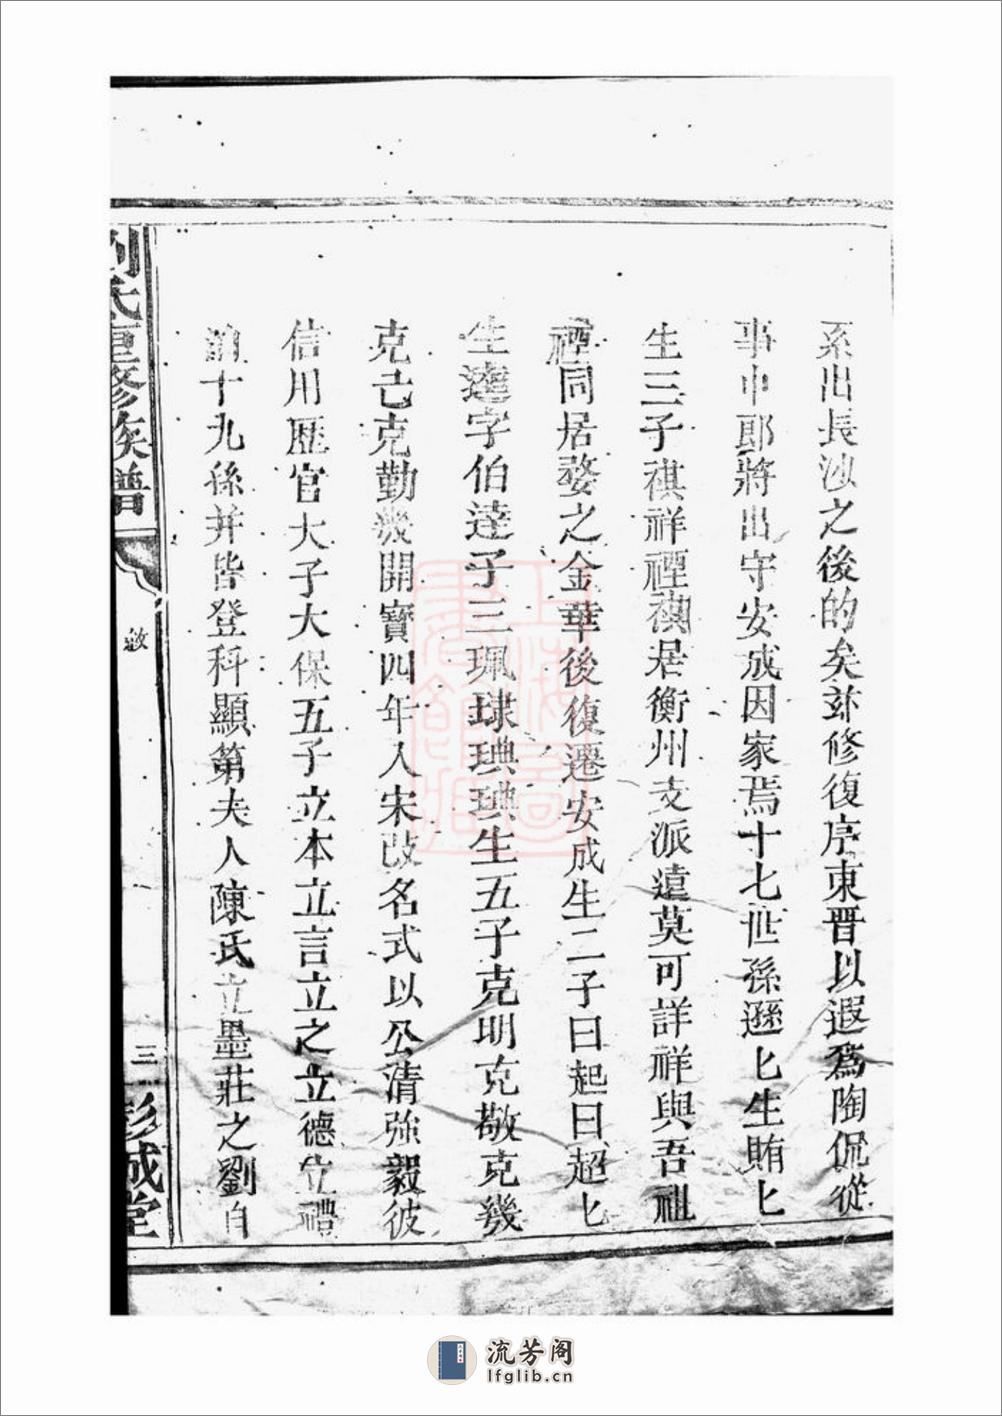 系出長沙之後的矣玆修復序東晋以遐爲陶侃從
事中郎將出守安成因家焉十七世孫遜匕生賄匕
生三子祺祥禋禥居衡州支派遠莫可詳祥與吾祖
禋同居婺之金華後復遷安成生二子曰起曰超匕
生達字伯逹子三珮球琠琠生五子克明克敬克㡬
克己克勤㡬開寶四年入宋改名式以公清強毅彼
信用歴官大子大保五子立本立言立之立德立禮
十九孫并皆登科顯第夫人陳氏立墨莊之劉自
劉氏重修族譜
敘
三
彭城堂
上海圖書館藏
流芳阁
lfglib.cn